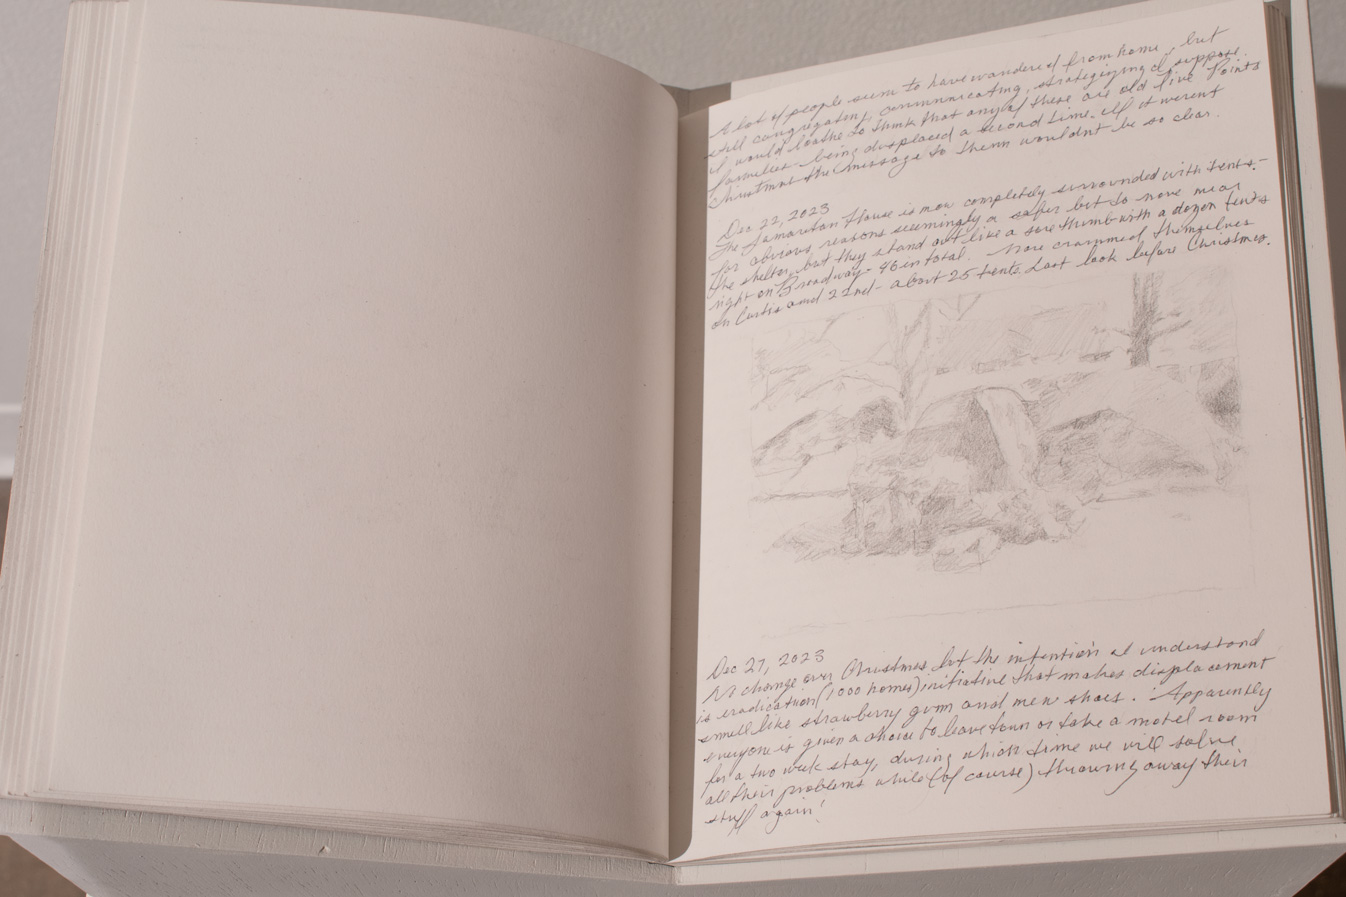 A lot of people seem to have wandered from home, but
still congregating, communicating, strategizing I suppose.
I would loathe to think that any of these are old Five Points
families being displaced a second time. If it werent
Christmas the message to them wouldnt be so clear.
Dec 22, 2023
The Samaritan House is now completely surrounded with tents-
for obvious reasons seemingly a safer bet to move near
the shelter, but they stand out like a sore thumb with a dozen tents
right on Broadway - 46 in total. More crammed themselves
on Curtis and 22nd - about 25 tents. Last look before Christmas.
Dec 27, 2023
No change over Christmas but the intention I understand
is eradication (1000 homes) initiative that makes displacement
smell like strawberry gum and new shoes. Apparently
everyone is given a choice to leave town or take a motel room
for a two week stay, during which time we will solve
all their problems while (of course) throwing away their
stuff again!